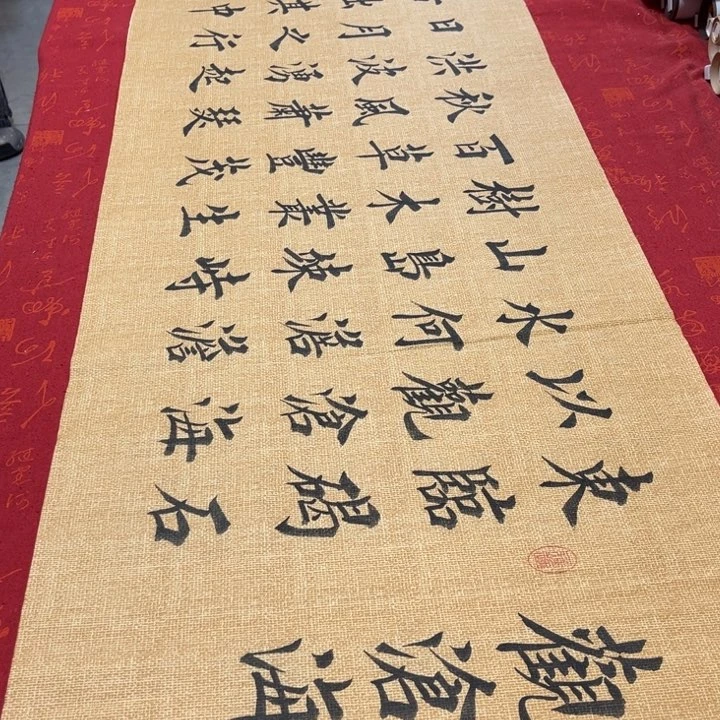 觀滄海
東臨碣石
以觀滄海
水何澹澹
山島竦峙
樹木叢生
百草豐茂
秋風蕭瑟
洪波湧起
日月之行
出其中